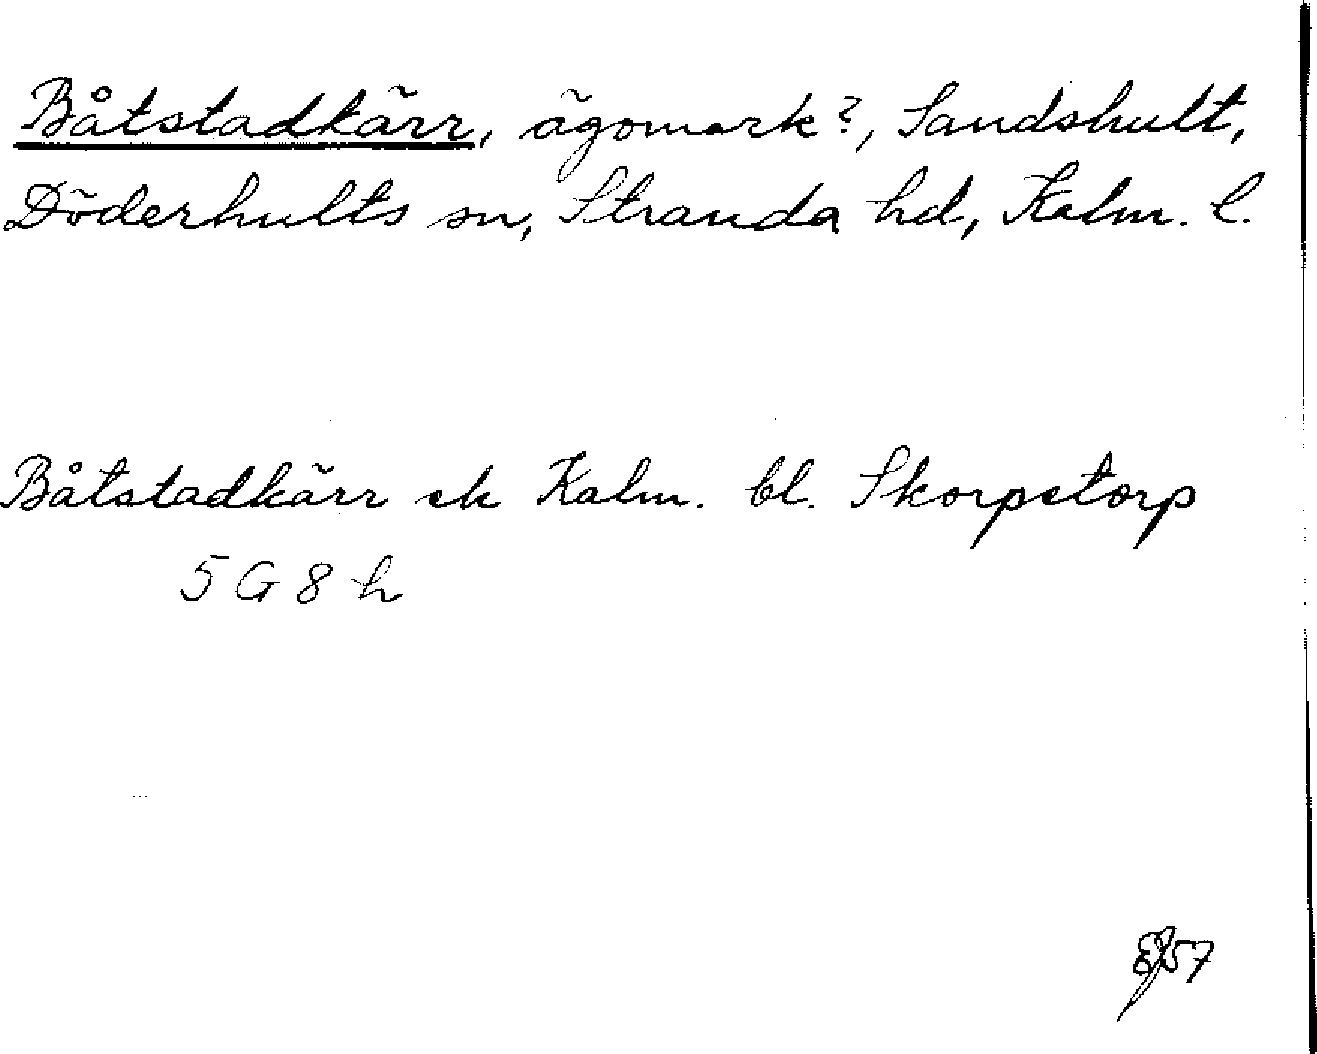 Båtstadkärr, ägomark?, Sandshult,
Döderhults sn, Stranda hd, Kalm. l.
Båtstadkärr ek Kalm. bl. Skorpetorp
5 G 8 h
57